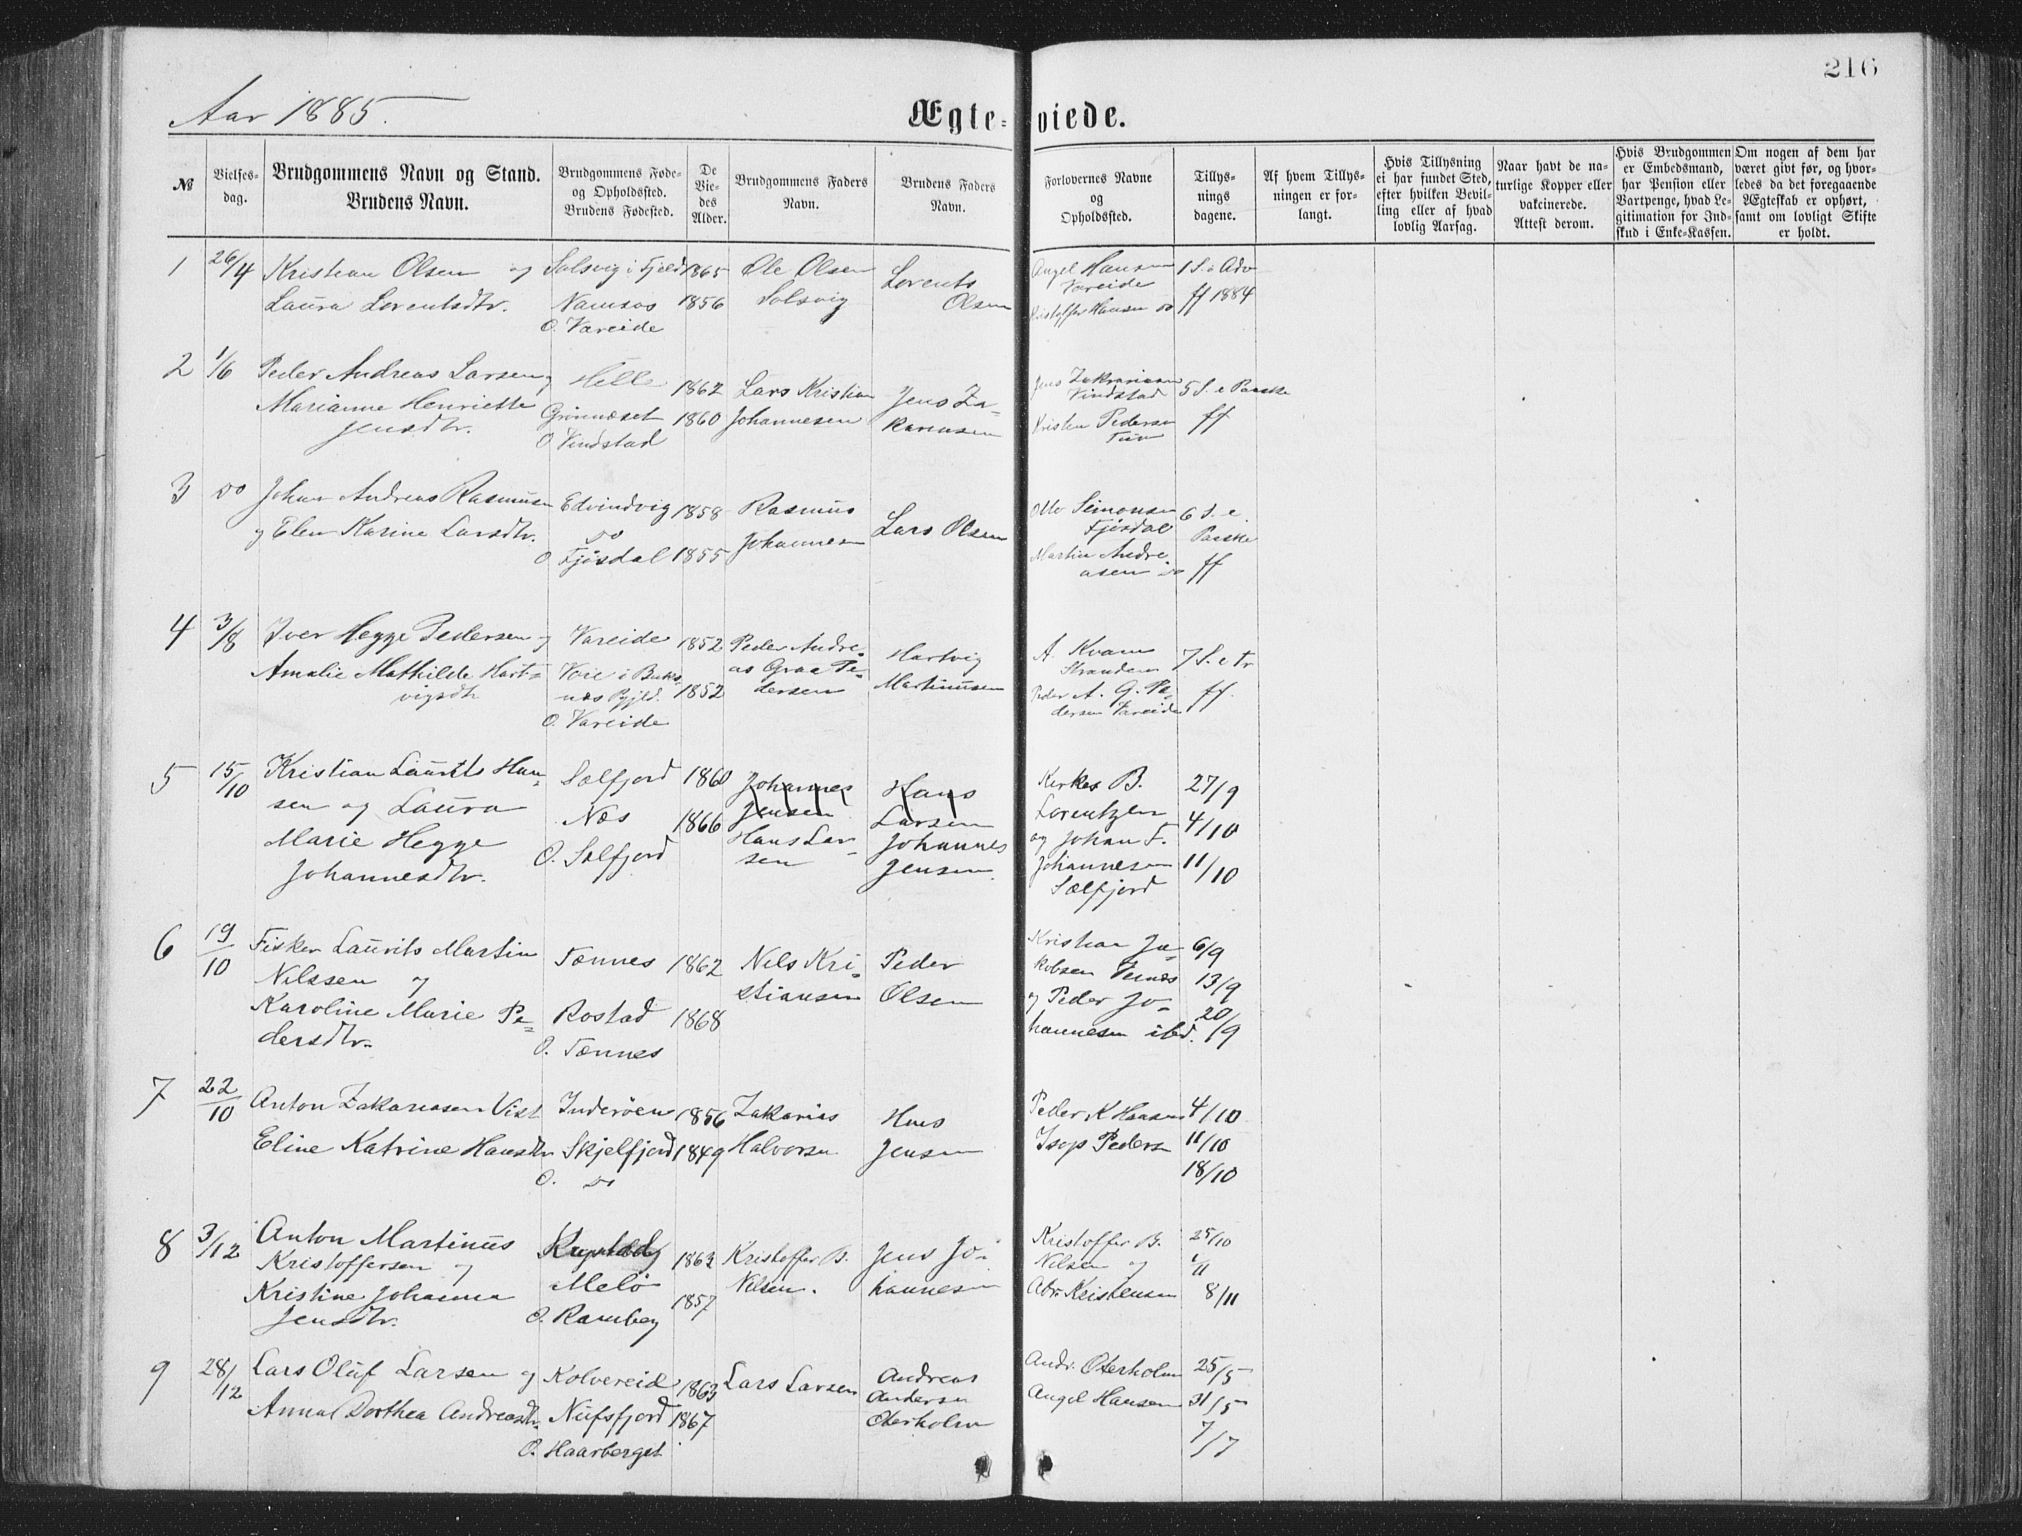 216
Aar 1885.
Ægteviede.
№
Vielses-
dag.
Brudgommens Navn og Stand.
Brudens Navn.
Brudgommens Føde-
og Opholdssted.
Brudens Fødested.
De
Vie-
des
Alder.
Brudgommens Faders
Navn.
Brudens Faders
Navn.
Forlovernes Navne
og
Opholdssted.
Tillys-
nings
dagene.
Af hvem Tillys-
ningen er for-
langt.
Hvis Tillysning
ei har fundet Sted,
efter hvilken Bevil-
ling eller af hvad
lovlig Aarsag.
Naar havt de na-
turlige Kopper eller
vakcinerede.
Attest derom.
Hvis Brudgommen
er Embedsmand,
har Pension eller
Vartpenge, hvad Le-
gitimation for Ind-
skud i Enke-Kassen.
Om nogen af dem har
været givt før, og hvor-
ledes da det foregaaende
Ægteskab er ophørt,
samt om lovligt Skifte
er holdt.
1 26/4 Kristian Olsen og
Laura Lorentsdtr.
Solsvig i Fjeld
Namsos
O. Vareide
1865
1856
Ole Olsen
Solsvig
Lorents
Olsen
Angel Hansen
Vareide
Kristoffer Hansen do
1 S. i Adv
ff 1884
2 1/6 Peder Andreas Larsen og
Marianne Henriette
Jensdtr.
Helle
Grønnæset
O. Vindstad
1862
1860
Lars Kristian
Johannesen
Jens Za-
kariasen
Jens Zakariasen
Vindstad
Kristen Pedersen
5 S. e Paaske
ff
3 do Johan Andreas Rasmusen
og Elen Karine Larsdtr.
Edvindvig
do
O. Fjøsdal
1858
1855
Rasmus
Johannesen
Lars Olsen
Otto Simonsen
Fjøsdal
Martin Andre-
asen do
6 S. e.
Paaske
ff
4 3/8 Iver Hegge Pedersen og
Amalie Mathilde Hart-
vigsdtr
Vareide
Voie i Buks-
næs Pgjld.
O. Vareide
1852
1852
Peder Andre-
as Graa Pe-
dersen
Hartvig
Martinusen
A. Kvam
Stranden
Peder A. G. Pe-
dersen Vareide
7 S. e Tr
ff.
5 15/10 Kristian Laurits Han-
sen og Laura
Marie Hegge
Johannesdtr.
Sælfjord
Næs
O. Sælfjord
1860
1866
Johannes
Jensen
Hans Lar-
sen
Hans
Larsen
Johannes
Jensen.
Kirkes B.
Lorentzen
og Johan F.
Johannesen
Sælfjord
27/9
4/10
11/10
6 19/10 Fisker Laurits Martin
Nilssen og
Karoline Marie Pe-
dersdtr.
Tønnes
Rostad
O. Tønnes
1862
1868
Nils Kri-
stiansen
Peder
Olsen
Kristian Ja-
kobsen Tennes
og Peder Jo-
hannesen ibd.
6/9
13/9
20/9
7 22/10 Anton Zakariasen Vist
Eline Katrine Hansdtr
Inderøen
Skjelfjord
O. do
1856
1849
Zakarias
Halvorsen
Hans
Jensen
Peder K Hansen
Isop Pedersn
4/10
11/10
18/10
8 3/12 Anton Martinus
Kristoffersen og
Kristine Johanna
Jensdtr.
Melø
O. Ramberg
1863
1857
Kristoffer B.
Nilsen.
Jens Jo-
hannesen
Kristoffer B.
Nilsen og
Adr. Kristensen
25/10
1/11
8/11
9 28/12 Lars Oluf Larsen og
Anna Dorthea Andreasdtr.
Kolvereid
Nufsfjord
O. Haarberget
1863
1867
Lars Larsen
Andreas
Andersen
Oterholm
Andr. Oterholm
Angel Hansen
25/5
31/5
7/7